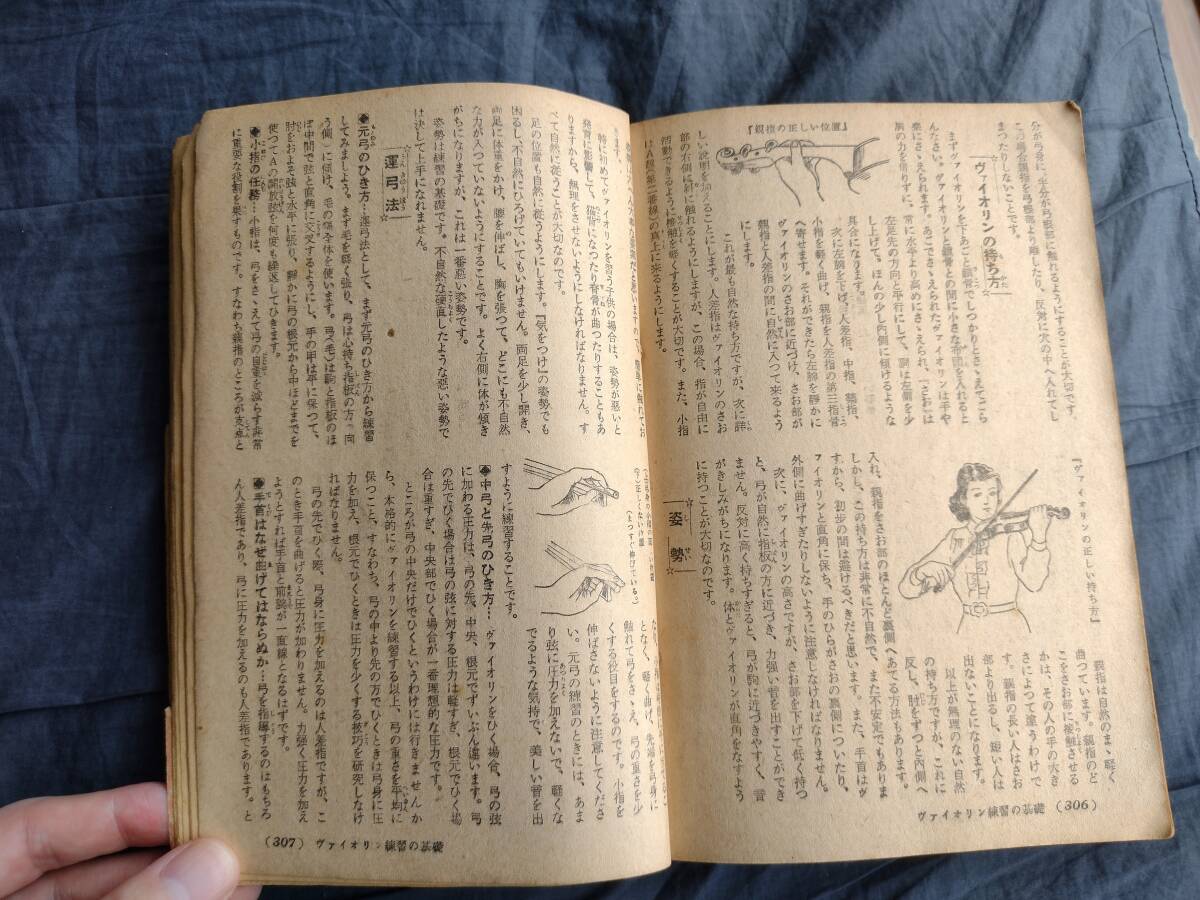 分が弓身に、半分が弓根部に触れるようにすることが大切です。
この場合親指を弓根部より離したり、反対に穴の中へ入れてし
まつたりしないことです。
ヴァイオリンの持ち方
まずヴァイオリンを下あごと鎖骨でしつかりとささえてごら
んなさい。ヴァイオリンと鎖骨との間に小さな布団を入れると
楽にさゝえられます。あごでさゝえられたヴァイオリンは手や
胸の力を借りずに、
常に水平より高めにさゝえられ、『さお』は
左足先の方向と平行にして、胴は左側を少
し上げて、ほんの少し内側に傾けるような
具合になります。
次に左腕を下げ、人差指、中指、薬指、
小指を軽く曲げ、親指を人差指の第三指骨
へ寄せます。それができたら左腕を静かに
ヴァイオリンのさお部に近づけ、さお部が
親指と人差指の間に自然に入つて来るよう
にします。
『親指の正しい位置』
これが最も自然な持ち方ですが、次に詳
しい説明を加えることにします。人差指はヴァイオリンのさお
部の右側に軽く触れるようにしますが、この場合、指が自由に
活動できるように接触を軽くすることが大切です。また、小指
はA線(第二番線)の真上に来るようにします。
『ヴァイオリンの正しい持ち方』
親指は自然のまゝ軽く
曲つています。親指のど
こをさお部に接触させる
かは、その人の手の大き
さによつて違うわけで
す。親指の長い人はさお
部より出るし、短い人は
出ないことになります。
以上が無理のない自然
の持ち方ですが、これに
反し、肘をずつと内側へ
入れ、親指をさお部のほとんど裏側へあてる方法もあります。
しかし、この持ち方は非常に不自然で、また不安定でもありま
すから、初歩の間は避けるべきだと思います。また、手首はヴ
ァイオリンと直角に保ち、手のひらがさおの裏側についたり、
外側に曲げすぎたりしないように注意しなければなりません。
次に、ヴァイオリンの高さですが、さお部を下げて低く持つ
と、弓が自然に指板の方に近づき、力強い音を出すことができ
ません。反対に高く持ちすぎると、弓が駒に近づきやすく、音
がきしみがちになります。体とヴァイオリンが直角をなすよう
に持つことが大切なのです。
姿勢
ヴァイオリン練習の基礎 (306)
特に初めてヴァイオリンを習う子供の場合は、姿勢が悪いと
発育に影響して、猫背になつたり脊骨が曲つたりすることもあ
りますから、無理をさせないようにしなければなりません。す
べて自然に従うことが大切なのです。
足の位置も自然に従うようにします。『気をつけ』の姿勢でも
困るし、不自然にひろげていてもいけません。両足を少し開き、
両足に体重をかけ、腰を伸ばし、胸を張つて、どこにも不自然
な力が入つていないようにすることです。よく右側に体が傾き
がちになりますが、これは一番悪い姿勢です。
姿勢は練習の基礎です。不自然な硬直したような悪い姿勢で
は決して上手になれません。
運弓法
◆元弓のひき方…運弓法として、まず元弓のひき方から練習
してみましよう。まず毛を軽く張り、弓は心持ち指板の方(向
う側)に傾け、毛の幅全体を使います。弓(毛)は駒と指板のほ
ぼ中間で弦と直角に交叉するようにし、手の甲は平に保つて、
肘をおよそ弦と水平に張り、静かに弓の根元から中ほどまでを
使つてAの開放弦を何度も繰返してひきます。
◆小指の任務…小指は、弓をさゝえて弓の自重を減らす非常
に重要な役割を果すものです。すなわち親指のところが支点と
(まつすぐ伸びている。)
となく、軽く曲げ、先端を弓身に
触れて弓をさゝえ、弓の重さを少
くする役目をするのです。小指を
伸ばさないように注意してくださ
い。元弓の練習のときには、あま
り弦に圧力を加えないで、軽くな
でるような気持で、美しい音を出
すように練習することです。
◆中弓と先弓のひき方… ヴァイオリンをひく場合、弓の弦
に加わる圧力は、弓の先、中央、根元でずいぶん違います。弓
の先でひく場合は弓の弦に対する圧力は軽すぎ、根元でひく場
合は重すぎ、中央部でひく場合が一番理想的な圧力です。
ところが弓の中央だけでひくというわけには行きませんか
ら、本格的にヴァイオリンを練習する以上、弓の重さを平均に
保つこと、すなわち、弓の中より先の方でひくときは弓身に圧
力を加え、根元でひくときは圧力を少くする技巧を研究しなけ
ればなりません。
弓の先でひく際、弓身に圧力を加えるのは人差指ですが、こ
のとき手首を曲げると圧力が加わりません。力強く圧力を加え
ようとすれば手首と前腕が一直線となるはずです。
◆手首はなぜ曲げてはならぬか…弓を指導するのはもちろ
ん人差指であり、弓に圧力を加えるのも人差指であります。と
(307) ヴァイオリン練習の基礎